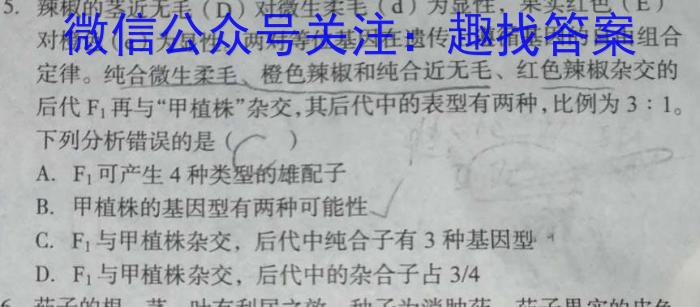 5. 辣椒的茎近无毛(D)对微生柔毛(d)为显性，果实红色(E)
微信公众号关注：趣找答案
定律。纯合微生柔毛、橙色辣椒和纯合近无毛、红色辣椒杂交的
后代F₁再与“甲植株”杂交,其后代中的表型有两种,比例为3：1。
下列分析错误的是(C)
A. F₁可产生4种类型的雄配子
B. 甲植株的基因型有两种可能性
C. F₁与甲植株杂交，后代中纯合子有3种基因型
D. F₁与甲植株杂交，后代中的杂合子占3/4